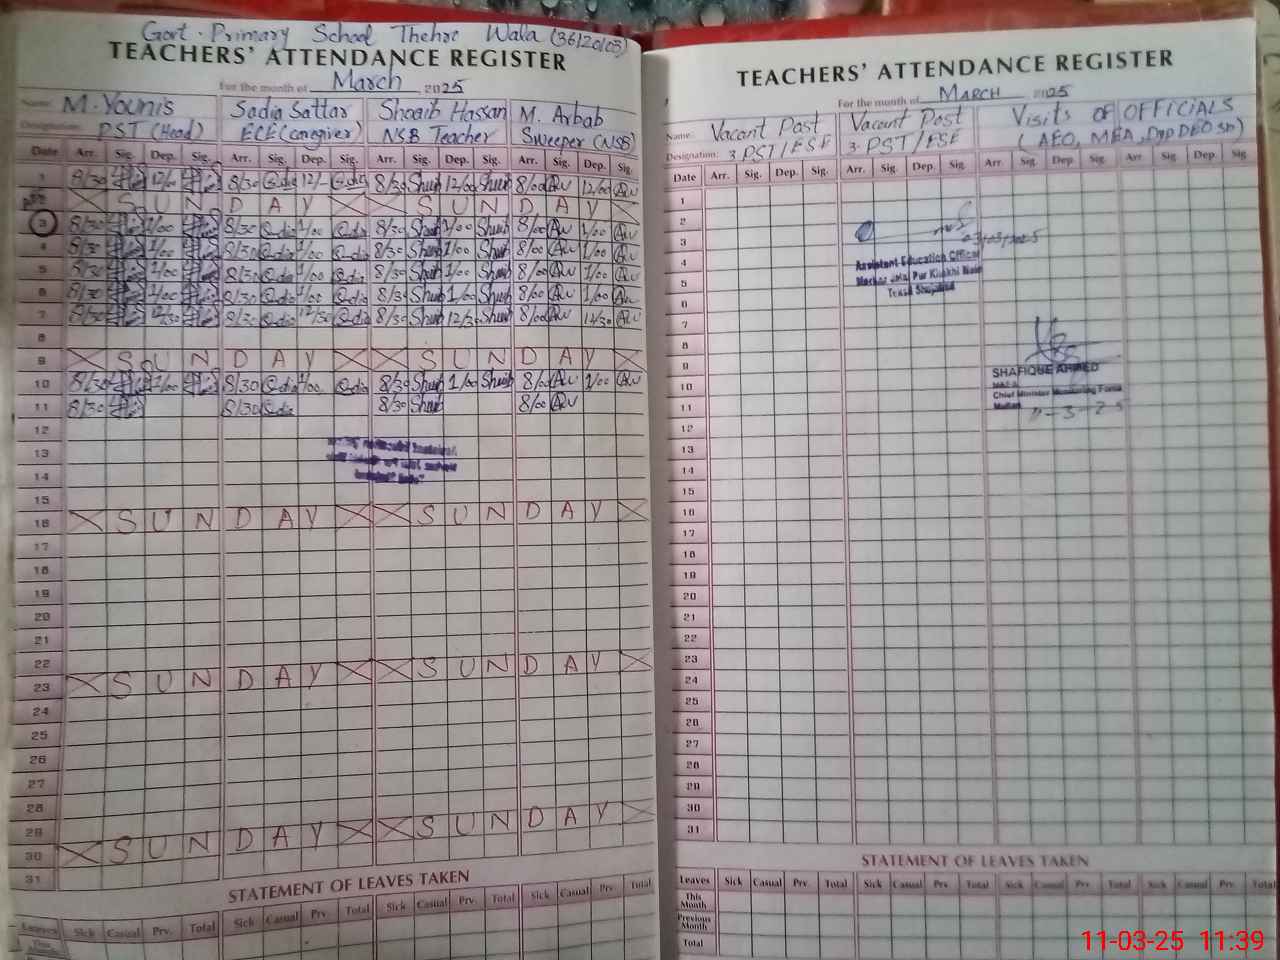 Govt. Primary School Thehre Wala (36120103)
TEACHERS' ATTENDANCE REGISTER
For the month of March 2025
Name: M. Younis Sadia Sattar Shoaib Hassan M. Arbab
Designation: PST (Head) ECE (Caregiver) NSB Teacher Sweeper (NSB)
Date Arr. Sig. Dep. Sig. Arr. Sig. Dep. Sig. Arr. Sig. Dep. Sig. Arr. Sig. Dep. Sig.
1 8/30 12/00 8/30 12/- 8/30 12/00 8/00 12/00
S U N D A Y S U N D A Y
3 8/30 1/00 8/30 1/00 8/30 1/00 8/00 1/00
4 8/30 1/00 8/30 1/00 8/30 1/00 8/00 1/00
5 8/30 1/00 8/30 1/00 8/30 1/00 8/00 1/00
6 8/30 1/00 8/30 1/00 8/30 1/00 8/00 1/00
7 8/30 12/30 8/30 12/30 8/30 12/30 8/00 12/30
8
9 S U N D A Y S U N D A Y
10 8/30 1/00 8/30 1/00 8/30 1/00 8/00 1/00
11 8/30 8/30 8/30 8/00
12
13
14
15
16 S U N D A Y S U N D A Y
17
18
19
20
21
22
23 S U N D A Y S U N D A Y
24
25
26
27
28
29
30 S U N D A Y S U N D A Y
31
STATEMENT OF LEAVES TAKEN
Leaves Sick Casual Prv. Total Sick Casual Prv. Total Sick Casual Prv. Total Sick Casual Prv. Total
This Month
TEACHERS' ATTENDANCE REGISTER
For the month of MARCH 2025
Name: Vacant Post Vacant Post Visits of OFFICIALS
Designation: 3 PST/ESE 3 PST/ESE (AEO, MEA, Dyp DEO sn)
Date Arr. Sig. Dep. Sig. Arr. Sig. Dep. Sig. Arr. Sig. Dep. Sig. Arr. Sig. Dep. Sig
1
2
3 03/03/2025
4 Assistant Education Officer
5 Markaz Jalal Pur Khakhi
6 Tehsil Shujabad
7
8
9 SHAFIQUE AHMED
10 M&EA
Chief Minister Monitoring Force
11 Multan 11-3-25
12
13
14
15
16
17
18
19
20
21
22
23
24
25
26
27
28
29
30
31
STATEMENT OF LEAVES TAKEN
Leaves Sick Casual Prv. Total Sick Casual Prv. Total Sick Casual Prv. Total Sick Casual Prv. Total
This Month
Previous Month
Total
11-03-25 11:39